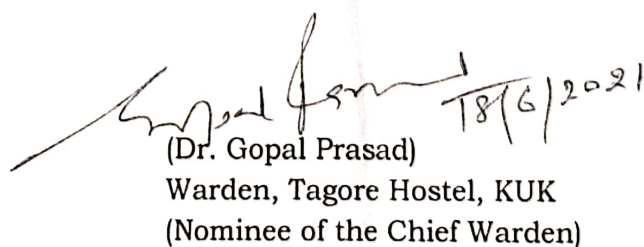 Gopal Prasad 18/6/2021
(Dr. Gopal Prasad)
Warden, Tagore Hostel, KUK
(Nominee of the Chief Warden)